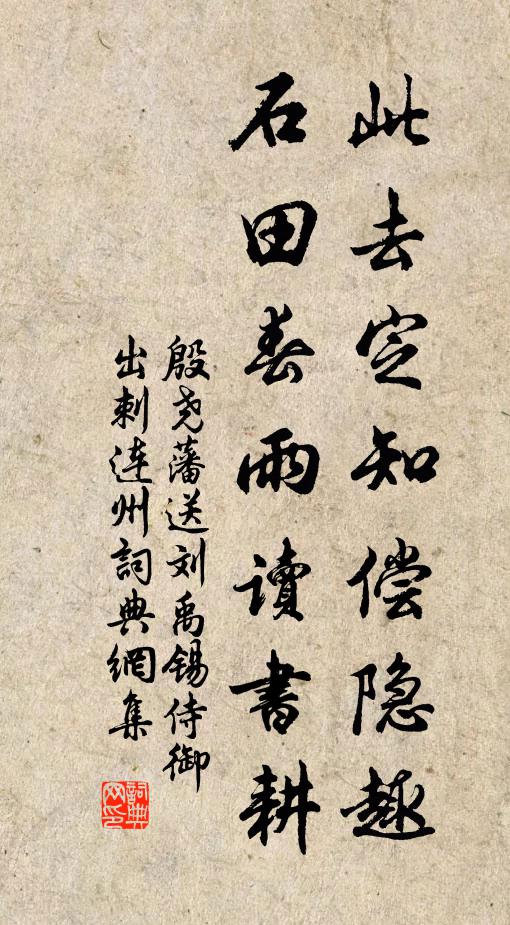 此去定知偿隐趣
石田春雨讀書耕
殷尧藩送刘禹锡侍御
出刺连州詞典網集
詞典
网印